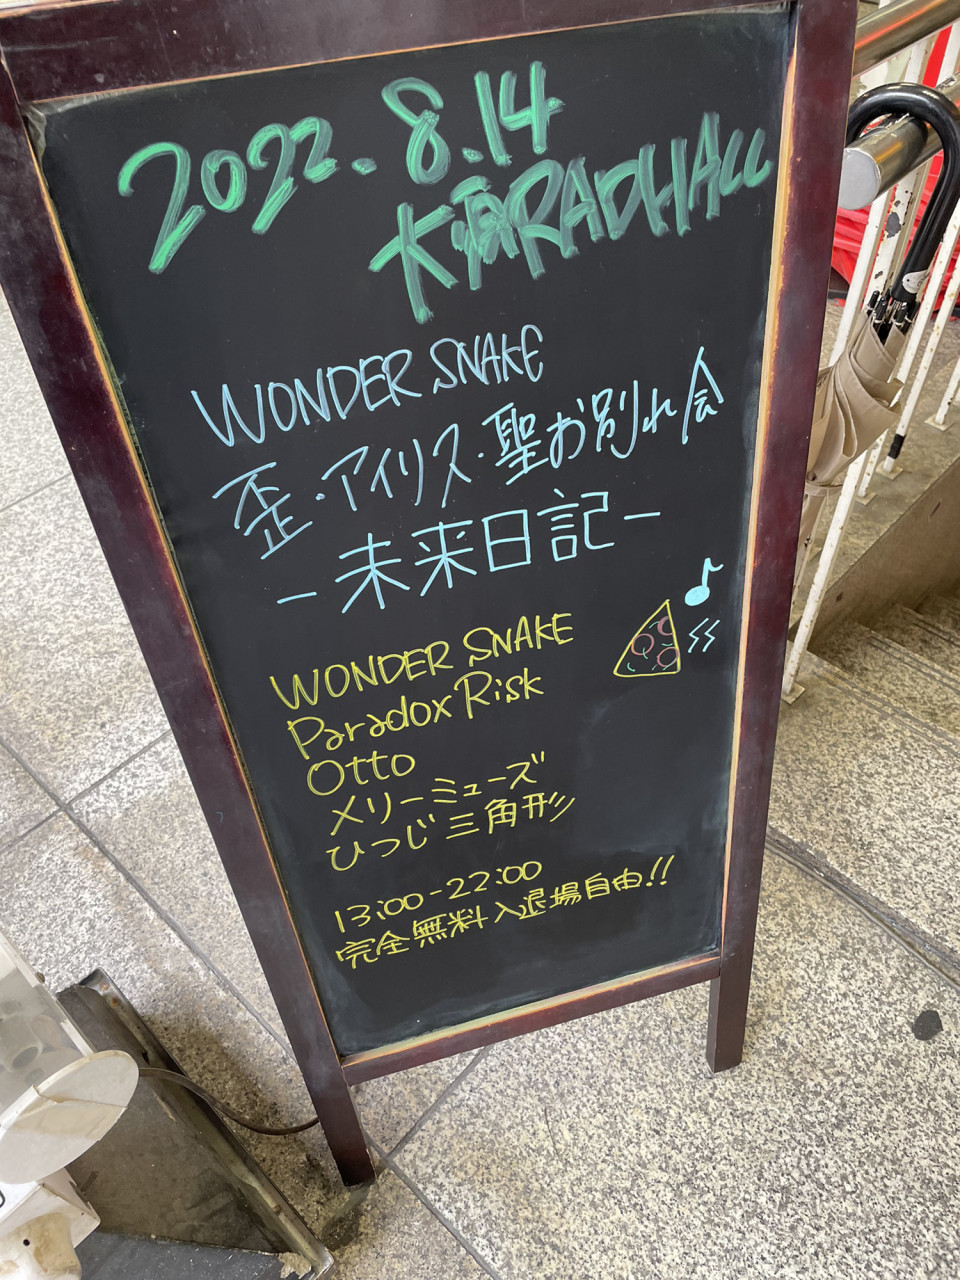 2022.8.14
大須RADHALL
WONDER SNAKE
歪・アイリス・聖お別れ会
-未来日記-
WONDER SNAKE
Paradox Risk
Otto
メリーミューズ
ひつじ三角形
13:00-22:00
完全無料入退場自由!!